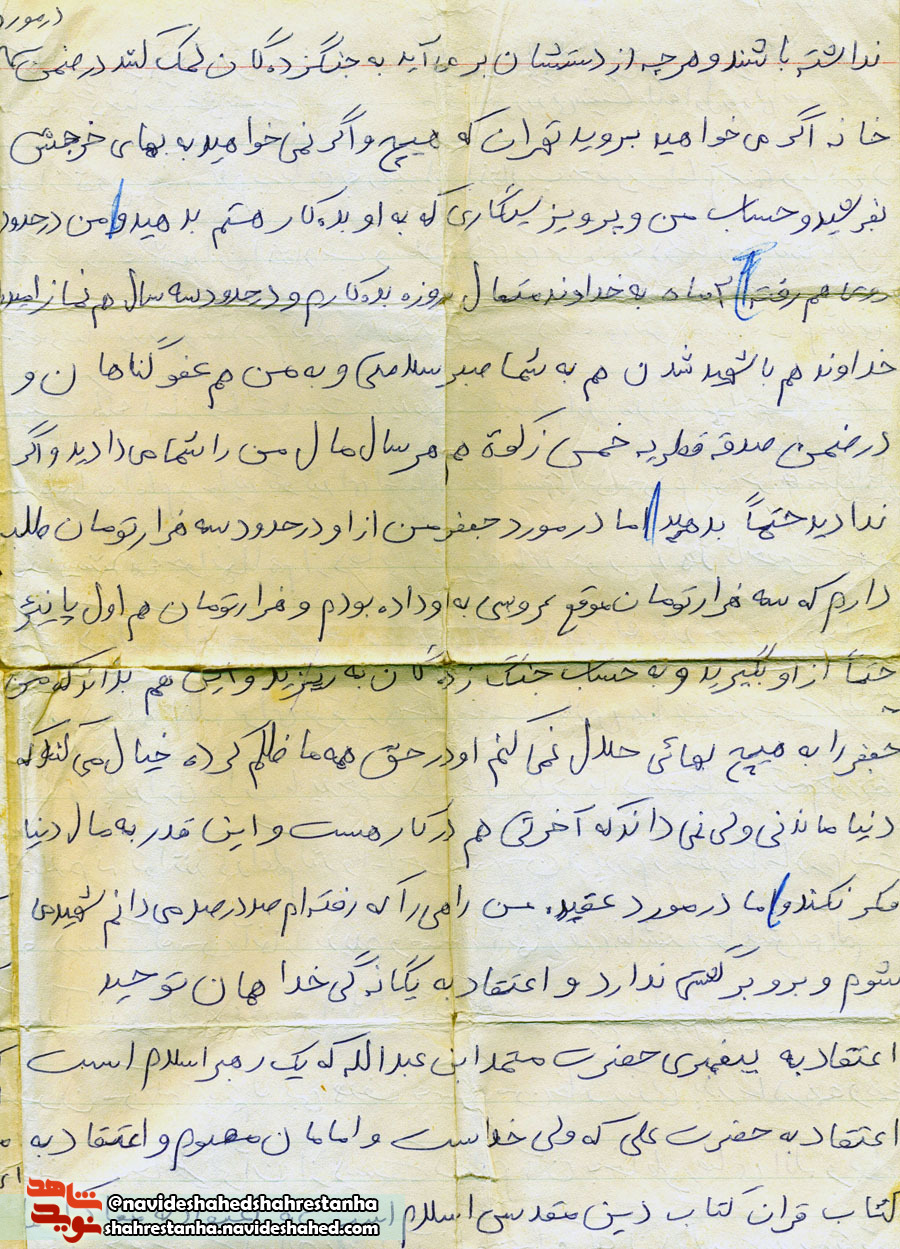 درمورد
نداشته باشند و هرچه از دستشان بر می آید به جنگزده گان کمک کنند در ضمن
خانه اگر می خواهید بروید تهران که هیچ و اگر نمی خواهید به بهای خرجش
بفرشید و حساب من و پرویز سیگاری که به او بده کار هستم بدهید و من درحدود
دوی هم رفته ۲ ماه به خداوند متعال روزه بده کارم و در حدود سه سال هم نماز
خداوند هم با شهید شدن هم به شما صبر سلامتی و به من هم عفو گناهان و
در ضمن صدقه فطریه خمس زکوة هم هر سال مال من را شما می دادید و اگر
ندادید حتماً بدهید اما در مورد جعفر من از او در حدود سه هزار تومان طلب
دارم که سه هزار تومان موقع عروسی به او داده بودم و هزار تومان هم اول پائیز
حتماً از او بگیرید و به حساب جنگ زده گان به ریزید و این هم بداند که من
جعفر را به هیچ بهائی حلال نمی کنم او در حق همه ما ظلم کرده خیال می کند که
دنیا ماندنی ولی نمی داند که آخرتی هم در کار هست و این قدر به مال دنیا
فکر نکند و اما در مورد عقیده من راهی را که رفته ام صد در صد می دانم شهید می
شوم و برو برگشتی ندارد و اعتقاد به یگانگی خدا همان توحید
اعتقاد به پیغمبری حضرت محمد ابن عبدالله که یک رهبر اسلام است
اعتقاد به حضرت علی که ولی خداست و امامان معصوم و اعتقاد به
کتاب قران کتاب دین مقدس اسلام
شاهد
نوید
@navideshahedshahrestanha
shahrestanha.navideshahed.com